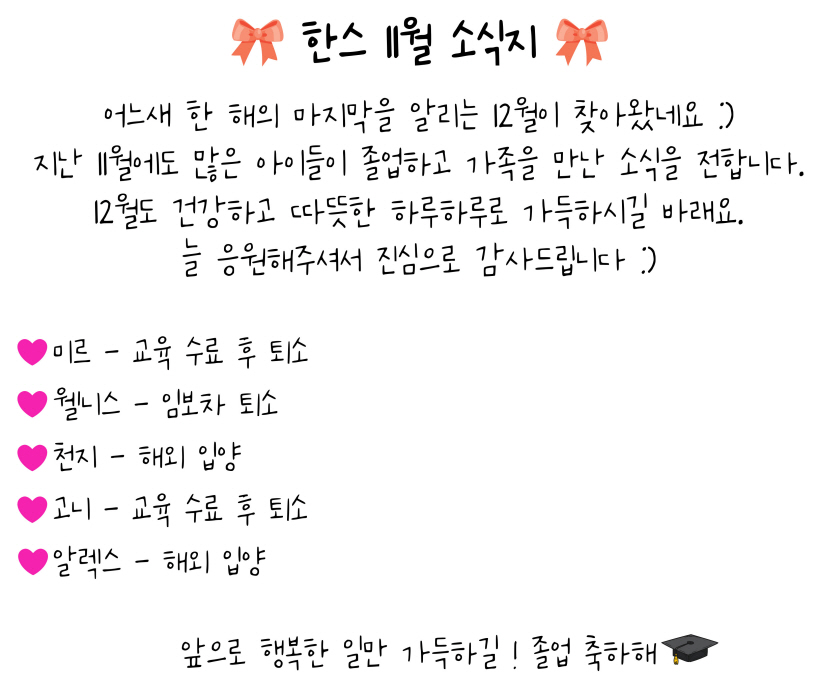 한스 11월 소식지
어느새 한 해의 마지막을 알리는 12월이 찾아왔네요 :)
지난 11월에도 많은 아이들이 졸업하고 가족을 만난 소식을 전합니다.
12월도 건강하고 따뜻한 하루하루로 가득하시길 바래요.
늘 응원해주셔서 진심으로 감사드립니다 :)
미르 - 교육 수료 후 퇴소
웰니스 - 임보차 퇴소
천지 - 해외 입양
고니 - 교육 수료 후 퇴소
알렉스 - 해외 입양
앞으로 행복한 일만 가득하길! 졸업 축하해